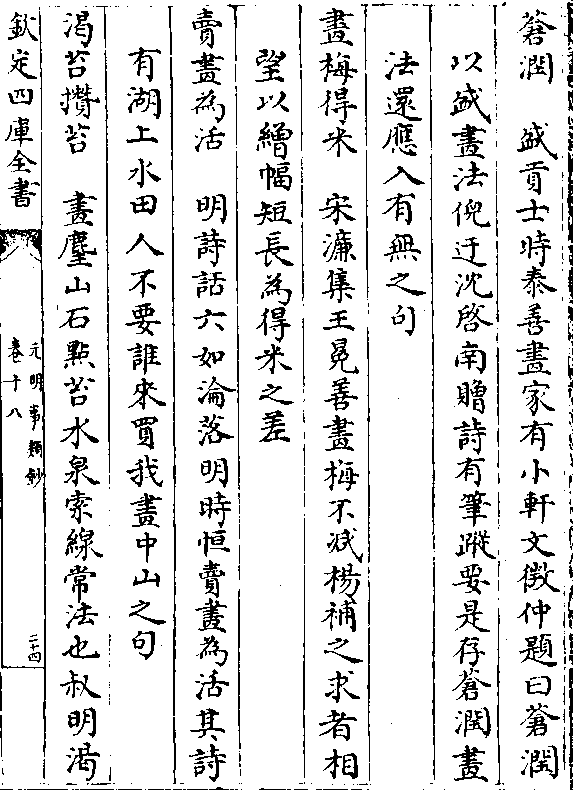 蒼潤　盛貢士時泰善畫家有小軒文徵仲題曰蒼潤
以盛畫法倪迂沈啓南贈詩有筆蹤要是存蒼潤畫
法還應入有無之句
畫梅得米　宋濂集王冕善畫梅不減楊補之求者相
望以繒幅短長為得米之差
賣畫為活　明詩話六如淪落明時恒賣畫為活其詩
有湖上水田人不要誰來買我畫中山之句
渴苔攢苔　畫麈山石點苔水泉索線常法也叔明渴
欽定四庫全書
元明事類鈔
卷十八
二十四